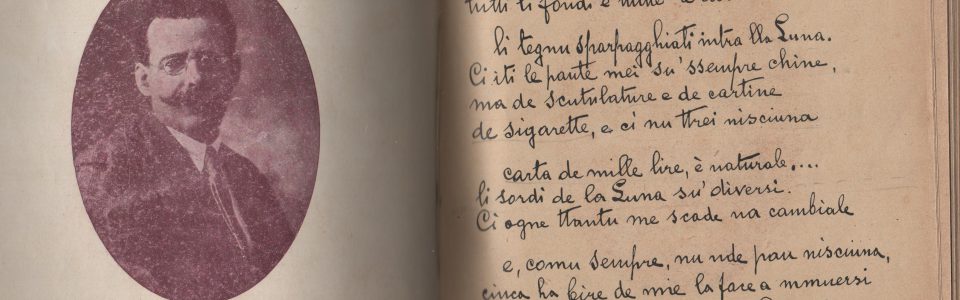 tutti li fondi e
li tegnu sparpagghiati intra lla Luna.
Ci iti le paute mei su' ssempre chine,
ma de scutulature e de cartine
de sigarette, e ci nu ttrei nisciuna
carta de mille lire, è naturale....
li sordi de la Luna su' diversi.
Ci ogne ttantu me scade na cambiale
e, comu sempre, nu nde pau nisciuna,
cinca ha bire de mie la face a mmuersi